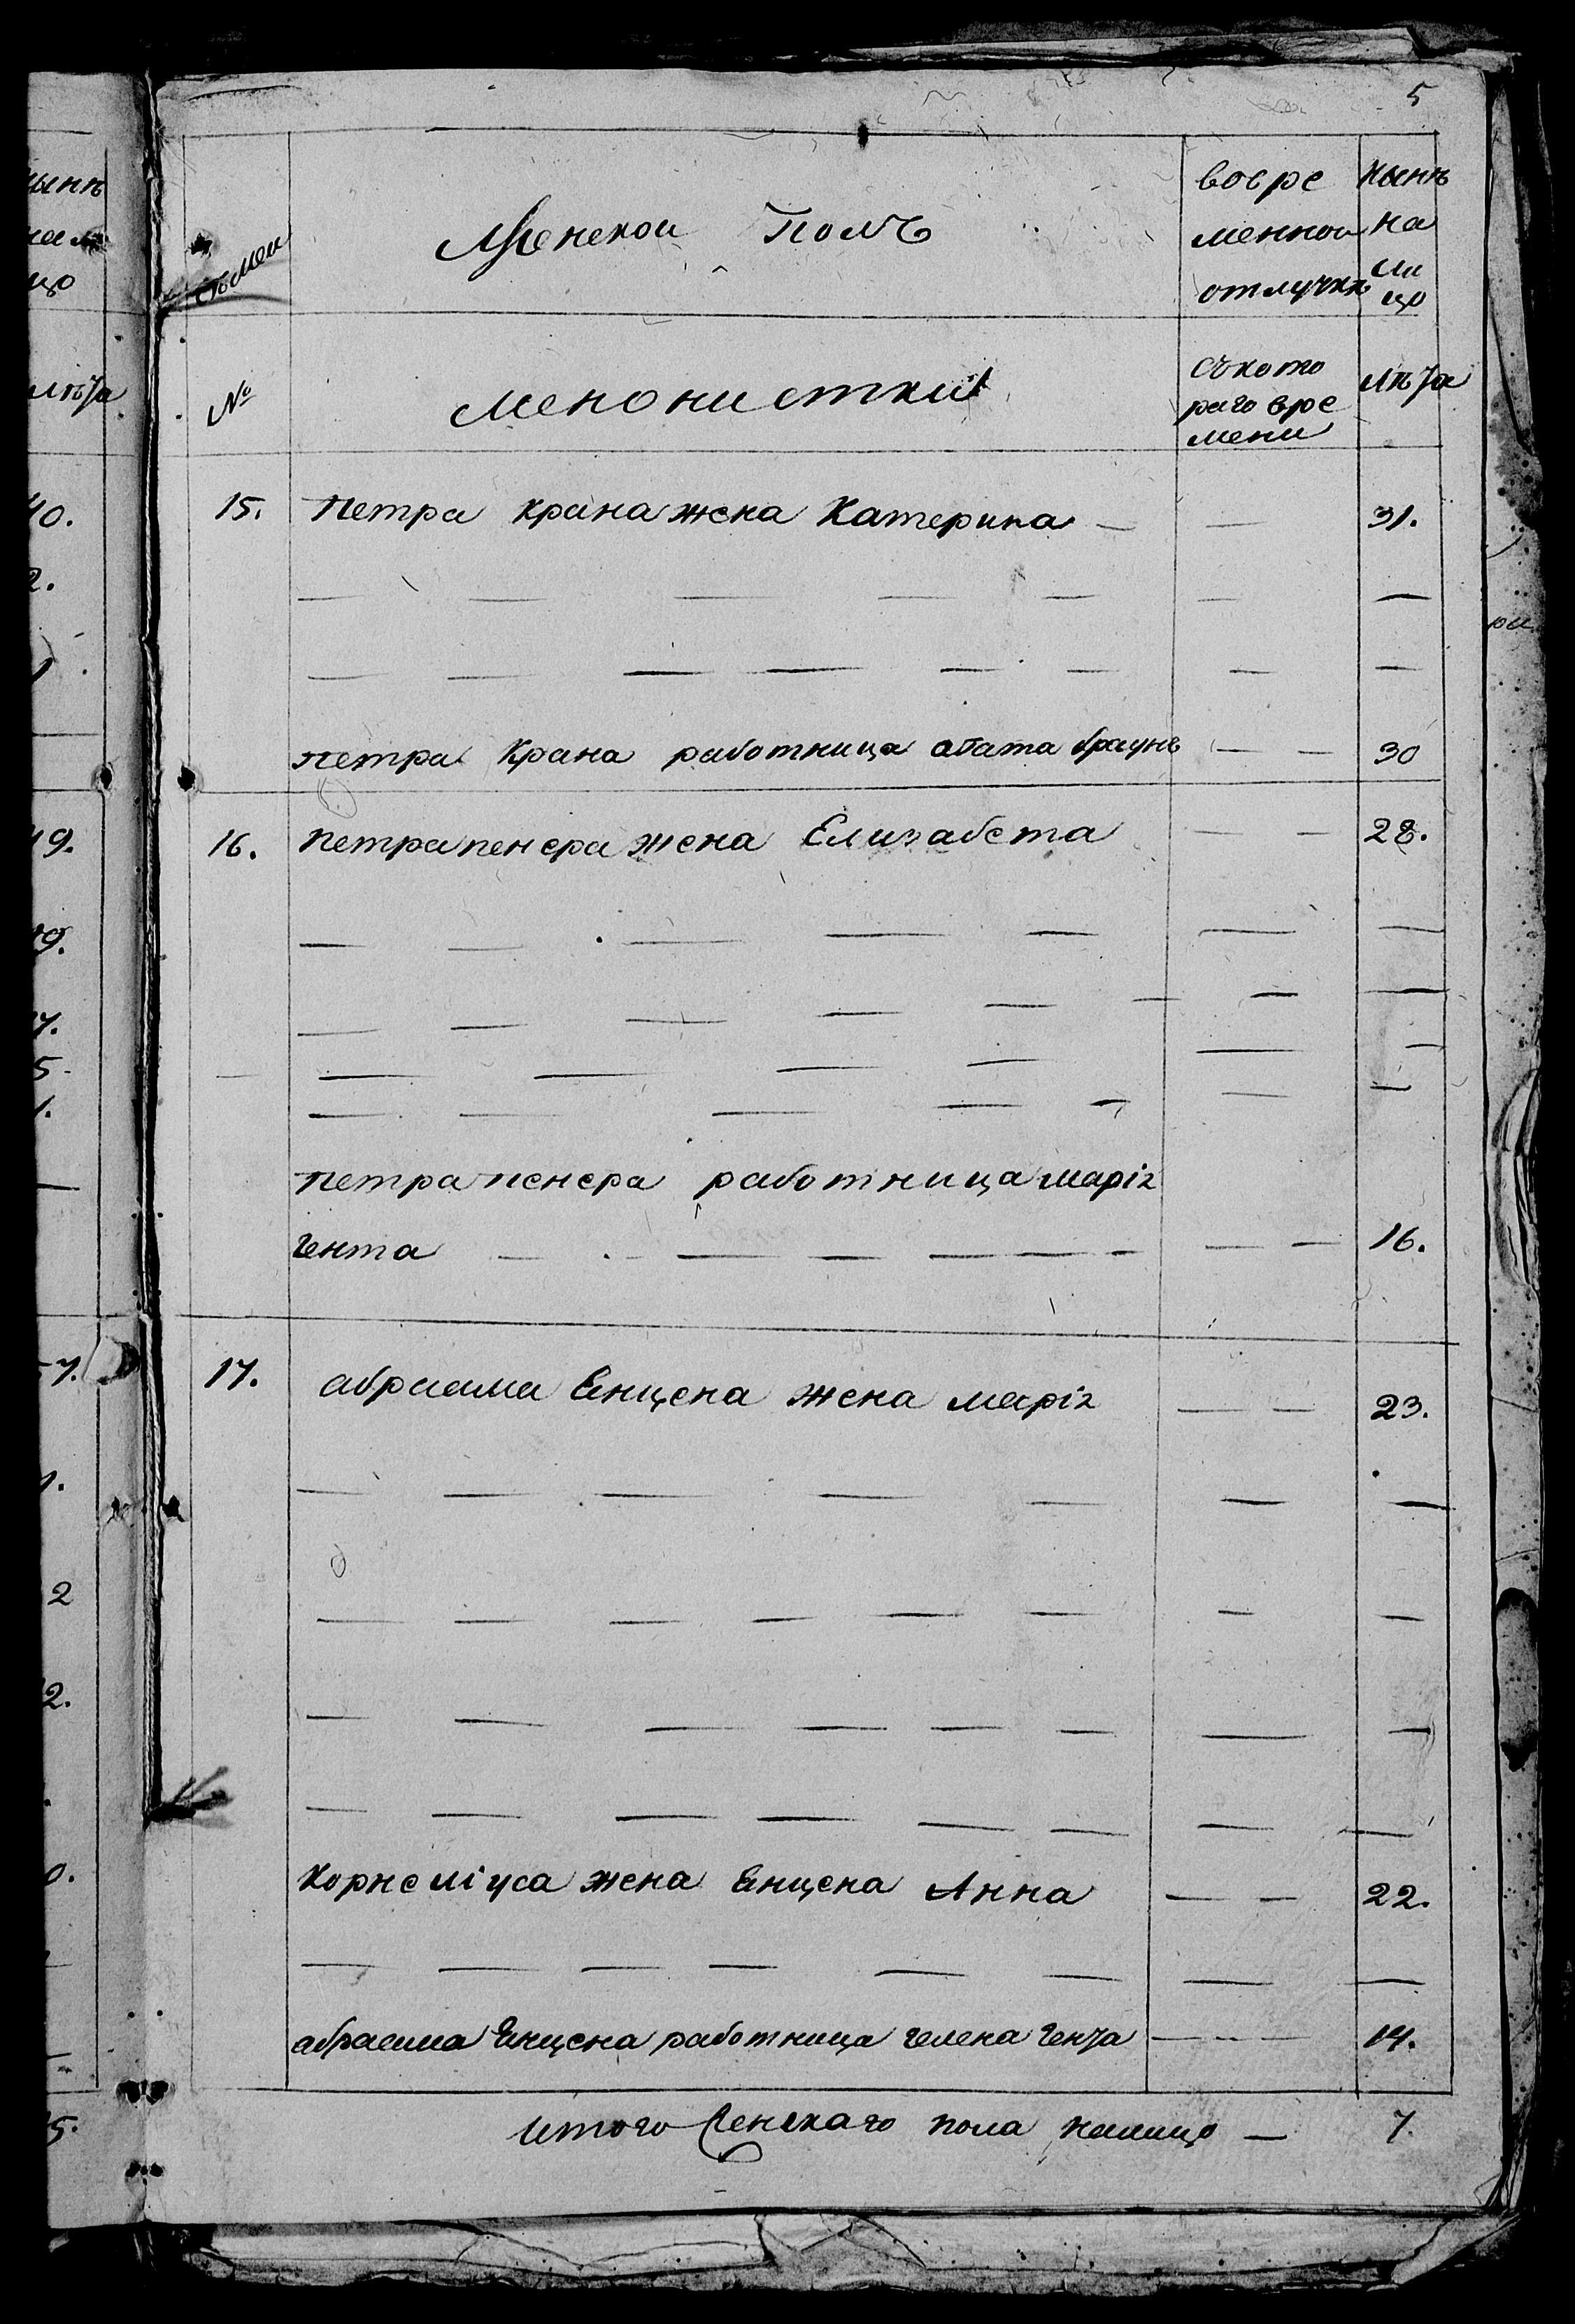 5
Семеи
Женской Полъ
во вре
менной
отлучкѣ
Нынѣ
на
ли
цо
№
менонистки
съ кото
раго вре
мени
лѣта
15. Петра Крана жена Катерина — — 31.
Петра Крана работница агата браунъ — — 30
16. Петра пенера жена Елизабета — — 28.
петра пенера работница маріа
гента — — 16.
17. абраама Енцена жена маріа — — 23.
Корнеліуса жена Енцена Анна — — 22.
абраама Енцена работница гелена гента — — 14.
Итого женскаго пола налицо — 7.
ынѣ
цо
лѣта